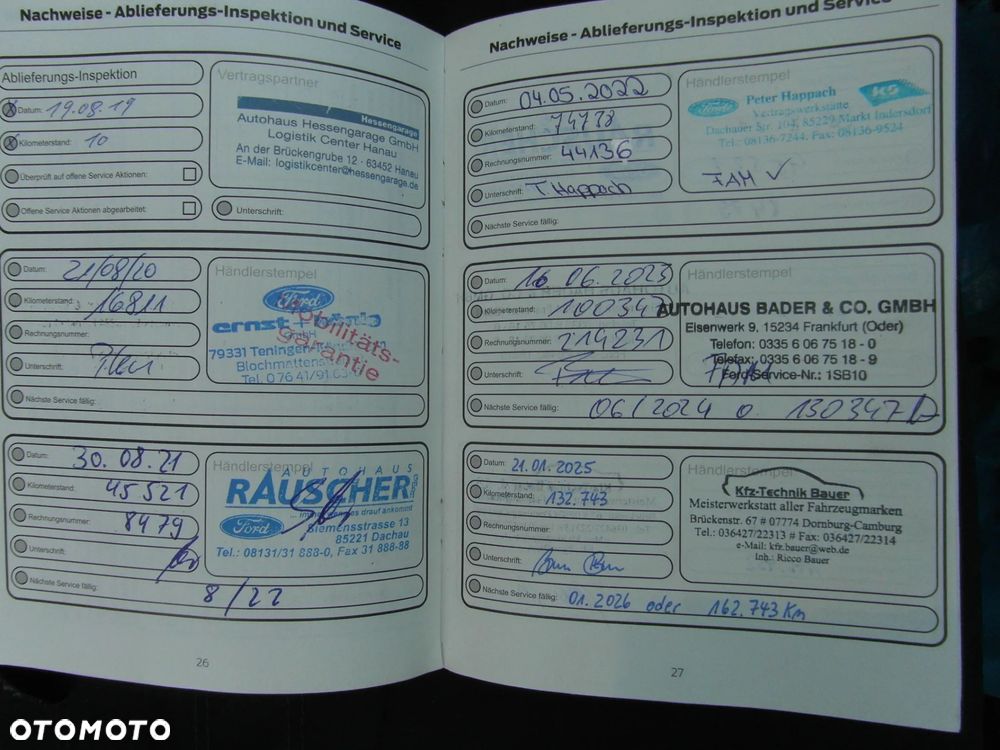 Nachweise - Ablieferungs-Inspektion und Service
Ablieferungs-Inspektion
Datum: 19.08.19
Kilometerstand: 10
Überprüft auf offene Service Aktionen:
Offene Service Aktionen abgearbeitet:
Vertragspartner
Hessengarage
Autohaus Hessengarage GmbH
Logistik Center Hanau
An der Brückengrube 12 · 63452 Hanau
E-Mail: logistikcenter@hessengarage.de
Unterschrift:
Datum: 21/08/20
Kilometerstand: 16811
Rechnungsnummer:
Unterschrift:
Nächste Service fällig:
Händlerstempel
Ford
ernst +
GmbH
79331 Teningen
Blochmattenstr
Tel. 07641/91
Mobilitäts-
garantie
Datum: 30.08.21
Kilometerstand: 45521
Rechnungsnummer: 8479
Unterschrift:
Nächste Service fällig: 8/22
Händlerstempel
AUTOHAUS
RAUSCHER GMBH
... immer bestes drauf ankommt
Ford
Siemensstrasse 13
85221 Dachau
Tel.: 08131/31 888-0, Fax 31 888-88
26
Nachweise - Ablieferungs-Inspektion und Service
Datum: 04.05.2022
Kilometerstand: 74778
Rechnungsnummer: 44136
Unterschrift: T. Happach
Nächste Service fällig:
Händlerstempel
Ford
Peter Happach
Vertragswerkstätte
Dachauer Str. 104, 85229 Markt Indersdorf
Tel.: 08136-7244, Fax: 08136-9524
FAM ✓
Datum: 16 06.2023
Kilometerstand: 100347
Rechnungsnummer: 214231
Unterschrift:
Nächste Service fällig: 06/2024 o. 130347
Händlerstempel
AUTOHAUS BADER & CO. GMBH
Eisenwerk 9, 15234 Frankfurt (Oder)
Telefon: 0335 6 06 75 18 - 0
Telefax: 0335 6 06 75 18 - 9
Ford-Service-Nr.: 1SB10
Datum: 21.01.2025
Kilometerstand: 132.743
Rechnungsnummer:
Unterschrift:
Nächste Service fällig: 01.2026 oder 162.743 Km
Händlerstempel
Kfz-Technik Bauer
Meisterwerkstatt aller Fahrzeugmarken
Brückenstr. 67 # 07774 Dornburg-Camburg
Tel.: 036427/22313 # Fax: 036427/22314
e-Mail: kfz.bauer@web.de
Inh.: Ricco Bauer
27
OTOMOTO